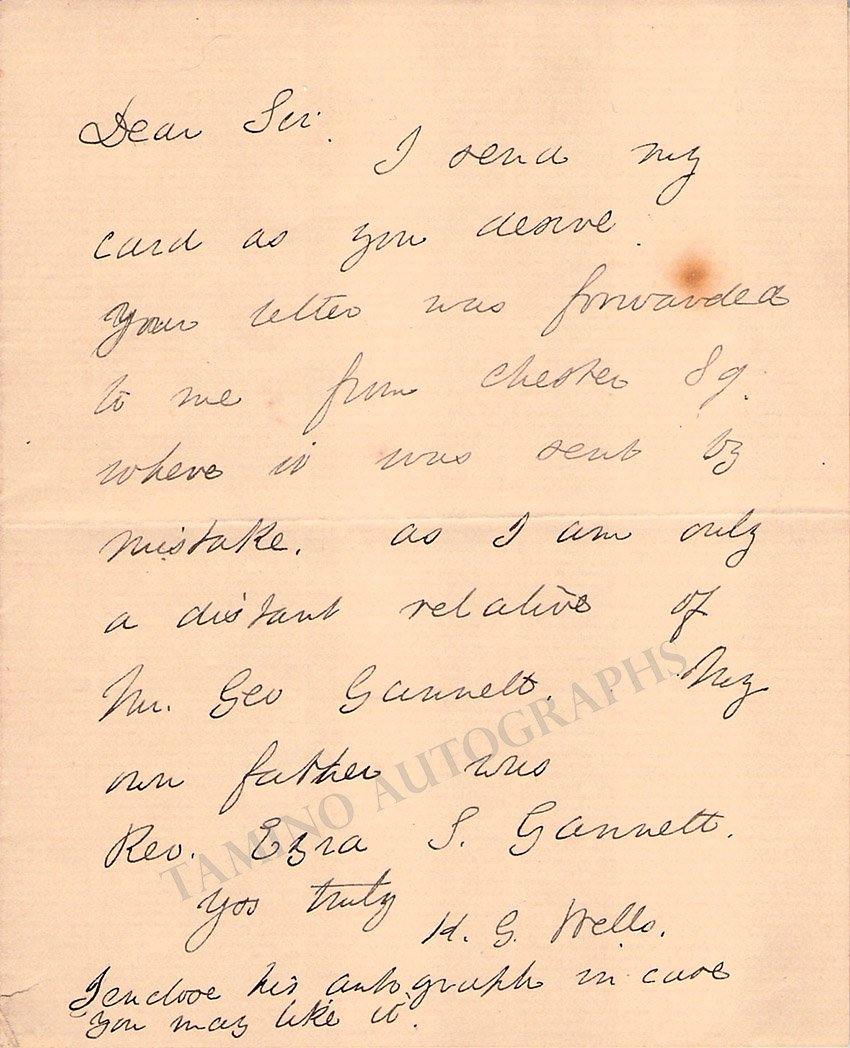 Dear Sir.
I send my
card as you desire.
Your letter was forwarded
to me from Chester Sq.
where it was sent by
mistake. as I am only
a distant relative of
Mr. Geo Gannett. My
own father was
Rev. Ezra S. Gannett.
Yrs truly
K. G. Wells.
I enclose his autograph in case
you may like it.
TAMINO AUTOGRAPHS